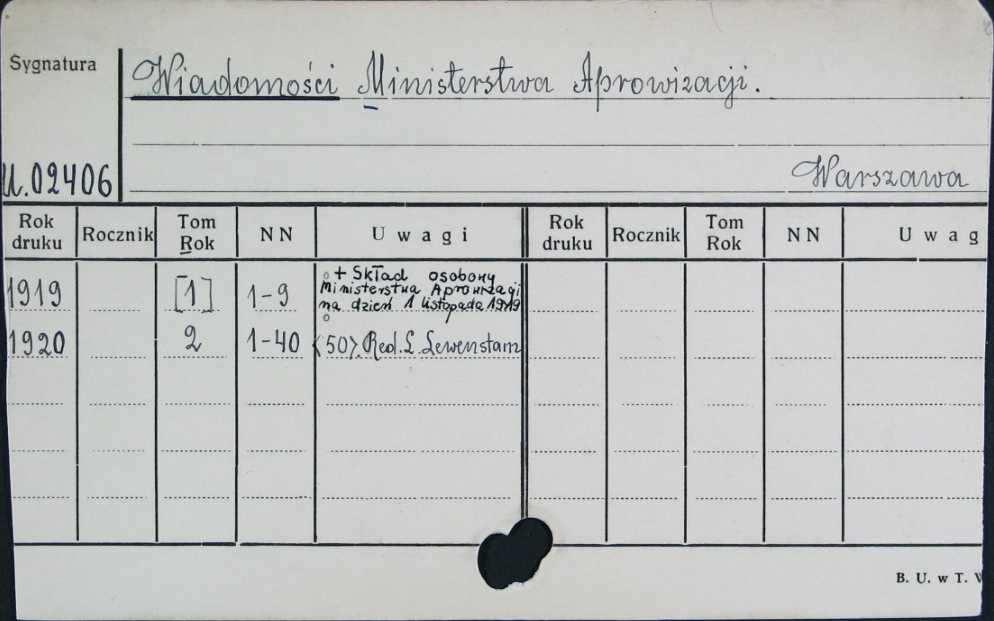 Sygnatura
Wiadomości Ministerstwa Aprowizacji.
U.02406
Warszawa
Rok druku Rocznik Tom Rok NN Uwagi Rok druku Rocznik Tom Rok NN Uwag
1919 [1] 1-9 + Skład osobowy
Ministerstwa Aprowizacji
na dzień 1 listopada 1919
1920 2 1-40 <50>. Red. L. Lewenstam
B. U. w T.